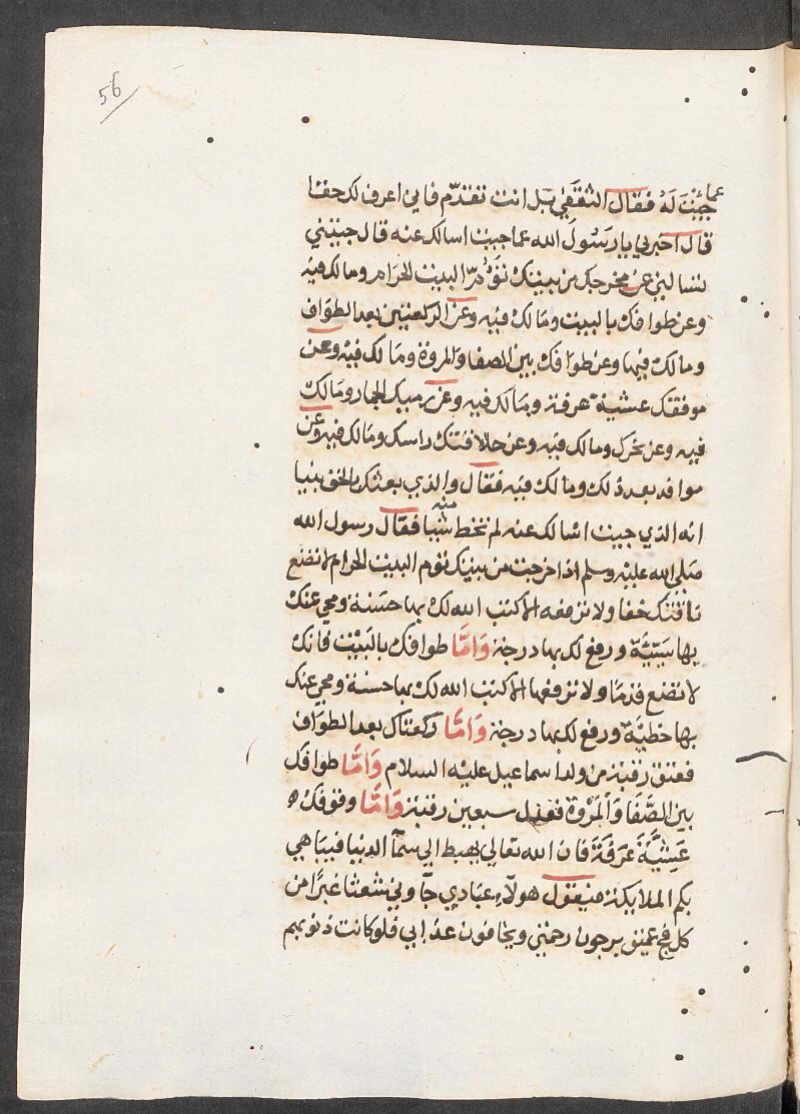 56
عما
جيت له فقال الثقفي بل انت تقدم فاني اعرف لك حقا
قال اخبرني يا رسول الله عما جيت اسالك عنه قال جيتني
تسالني عن مخرجك من بيتك تؤم البيت الحرام وما لك فيه
وعن طوافك بالبيت وما لك فيه وعن الركعتين بعد الطواف
وما لك فيها وعن طوافك بين الصفا والمروة وما لك فيه وعن
موقفك عشية عرفة وما لك فيه وعن رميك الجمار وما لك
فيه وعن نحرك وما لك فيه وعن حلاقتك راسك وما لك فيه وعن
طوافك بعد ذلك وما لك فيه فقال والذي بعثك بالحق نبيا
منه
انه الذي جيت اسالك عنه لم تخط شيا فقال رسول الله
صلى الله عليه وسلم اذا خرجت من بيتك تؤم البيت الحرام لا تضع
ناقتك خفا ولا ترفعه الا كتب الله لك بها حسنة ومحي عنك
بها سيئة ورفع لك بها درجة وَامَّا طوافك بالبَيْت فانك
لا تضع قدما ولا ترفعها الا كتب الله لك بها حسنة ومحي عنك
بها خطيَّة ورفع لك بها درجة وَامَّا ركعتاك بعد الطواف
فعتق رقبة من ولد اسماعيل عليه السلام وَامَّا طوافك
بين الصَّفَا وَالمَرْوة فعدل سبعين رقبة وَامَّا وقوفك
عَشِيَّةَ عَرَفَةَ فان الله تعالي يهبط الي سمآ الدنيا فيباهي
بكم الملايكة فيقول هولآء عبادي جآوني شعثا غبرًا من
كل فج عميق يرجون رحمتي ويخافون عذابي فلو كانت ذنوبهم